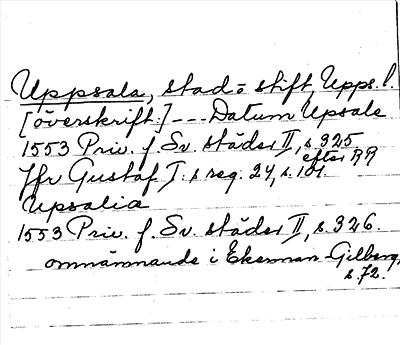 Uppsala, stad o stift, Upps. l.
[överskrift:] --- Datum Upsale
1553 Priv. f. Sv. städer II, s. 325
efter RR
Jfr Gustaf I:s reg. 24, s. 101.
Upsalia
1553 Priv. f. Sv. städer II, s. 326.
omnämnande i Ekerman-Gilberg,
s. 72.